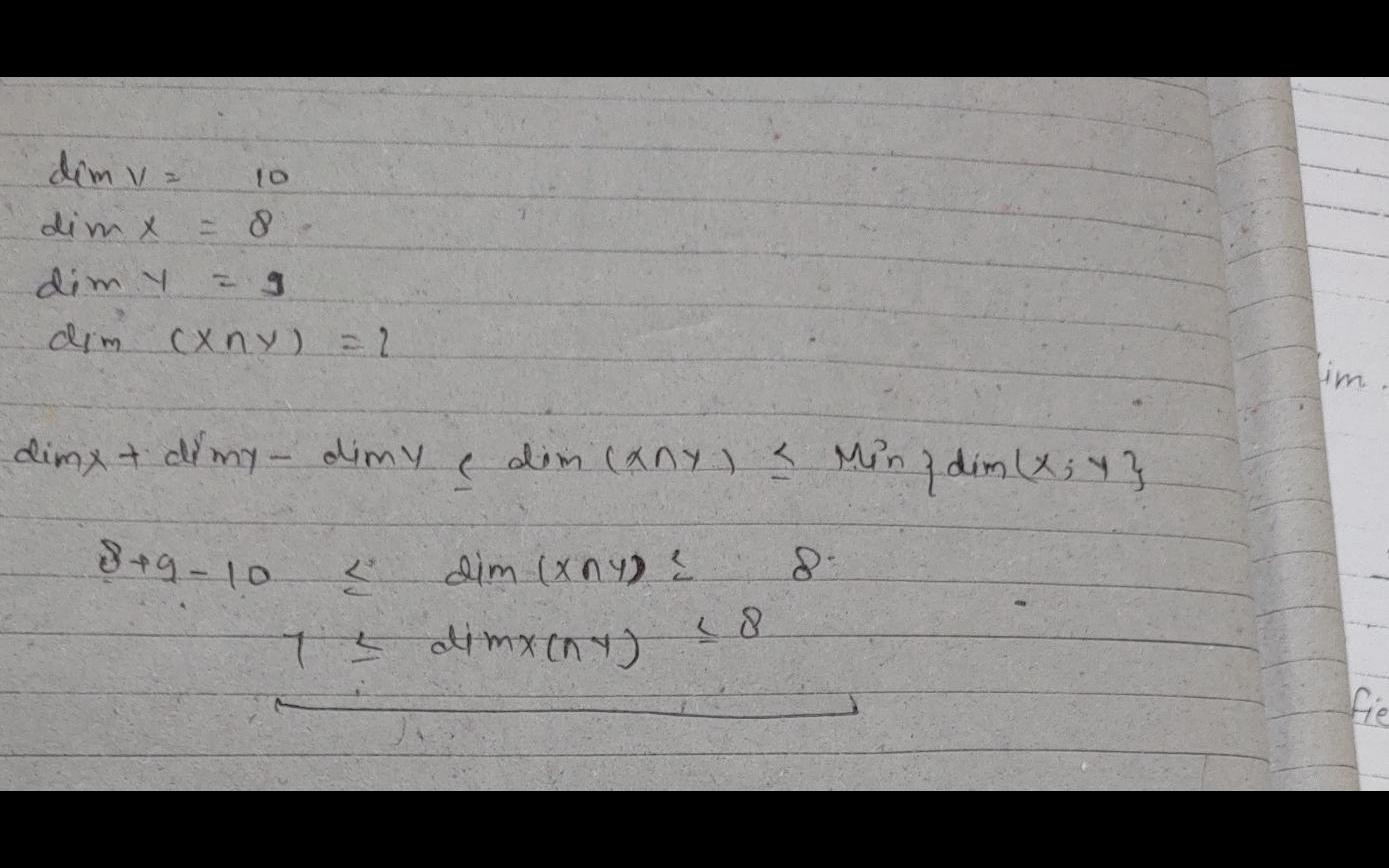 dim V = 10
dim X = 8
dim Y = 9
dim (X∩Y) = ?
dim X + dim Y - dim V ≤ dim (X∩Y) ≤ Min } dim(X; Y}
8+9-10 ≤ dim (X∩Y) ≤ 8
7 ≤ dim X(∩Y) ≤ 8
im.
fie